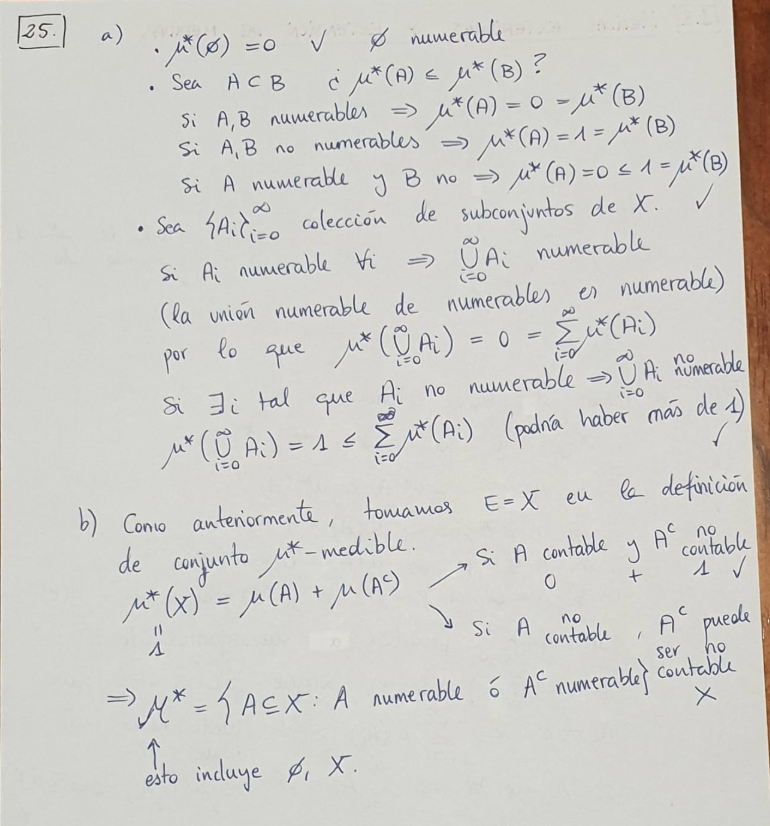 25. a) · μ*(∅) = 0 ✓ ∅ numerable
· Sea A ⊂ B ¿ μ*(A) ≤ μ*(B) ?
Si A, B numerables ⟹ μ*(A) = 0 = μ*(B)
Si A, B no numerables ⟹ μ*(A) = 1 = μ*(B)
Si A numerable y B no ⟹ μ*(A) = 0 ≤ 1 = μ*(B) ✓
· Sea {Ai}_{i=0}^∞ colección de subconjuntos de X.
Si Ai numerable ∀i ⟹ ⋃_{i=0}^∞ Ai numerable
(la unión numerable de numerables es numerable)
por lo que μ*(⋃_{i=0}^∞ Ai) = 0 = ∑_{i=0}^∞ μ*(Ai)
Si ∃i tal que Ai no numerable ⟹ ⋃_{i=0}^∞ Ai no numerable
μ*(⋃_{i=0}^∞ Ai) = 1 ≤ ∑_{i=0}^∞ μ*(Ai) (podría haber más de 1) ✓
b) Como anteriormente, tomamos E = X en la definición
de conjunto μ*-medible.
μ*(X) = μ(A) + μ(Aᶜ)
=
1
Si A contable y Aᶜ no contable
0 + 1 ✓
Si A no contable, Aᶜ puede ser no contable X
⟹ M* = {A ⊆ X : A numerable ó Aᶜ numerable}
↑
esto incluye ∅, X.